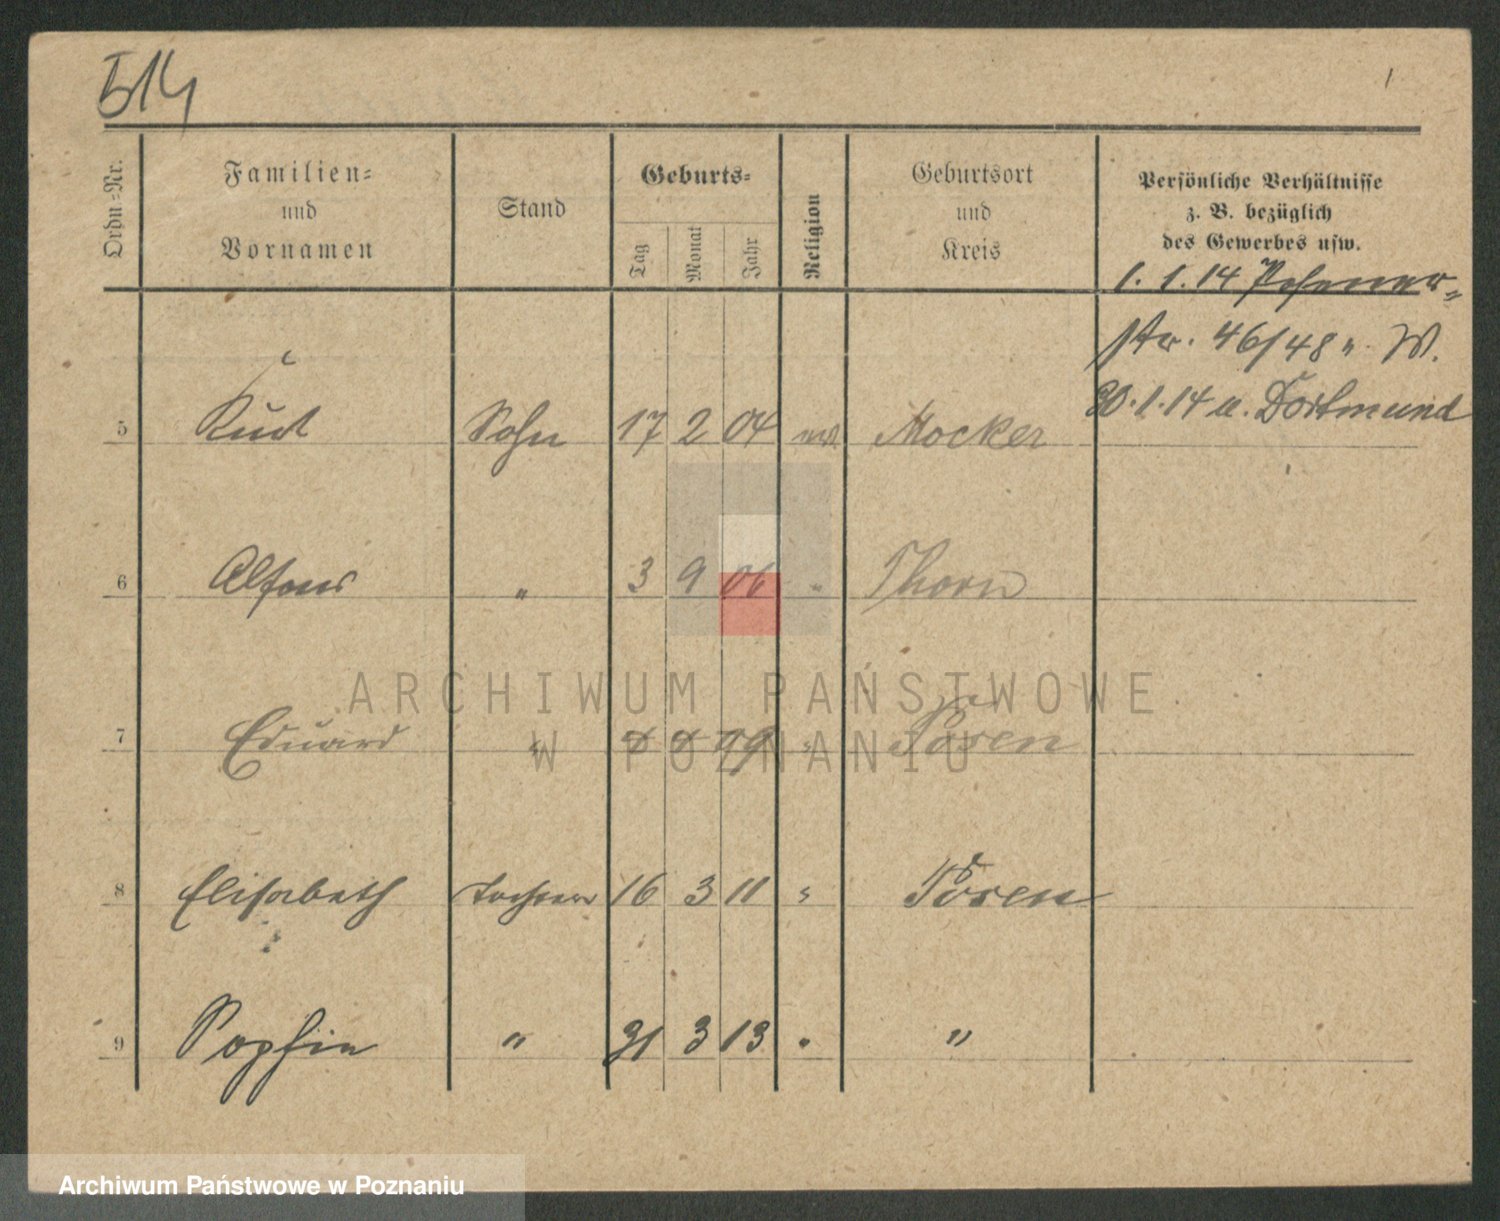 514
Ordn.=Nr.
Familien=
und
Vornamen
Stand
Geburts=
Tag
Monat
Jahr
Religion
Geburtsort
und
Kreis
Persönliche Verhältnisse
z. B. bezüglich
des Gewerbes usw.
1. 1. 14 Posener=
str. 46/48 W.
20. 1. 14 a. Dortmund
5 Kurt Sohn 17 2 04 Mocker
6 Alfons " 3 9 06 " Thorn
ARCHIWUM PAŃSTWOWE
W POZNANIU
7 Eduard " 09 " Posen
8 Elisabeth Tochter 16 3 11 " Posen
9 Sophie " 31 3 13 " "
Archiwum Państwowe w Poznaniu